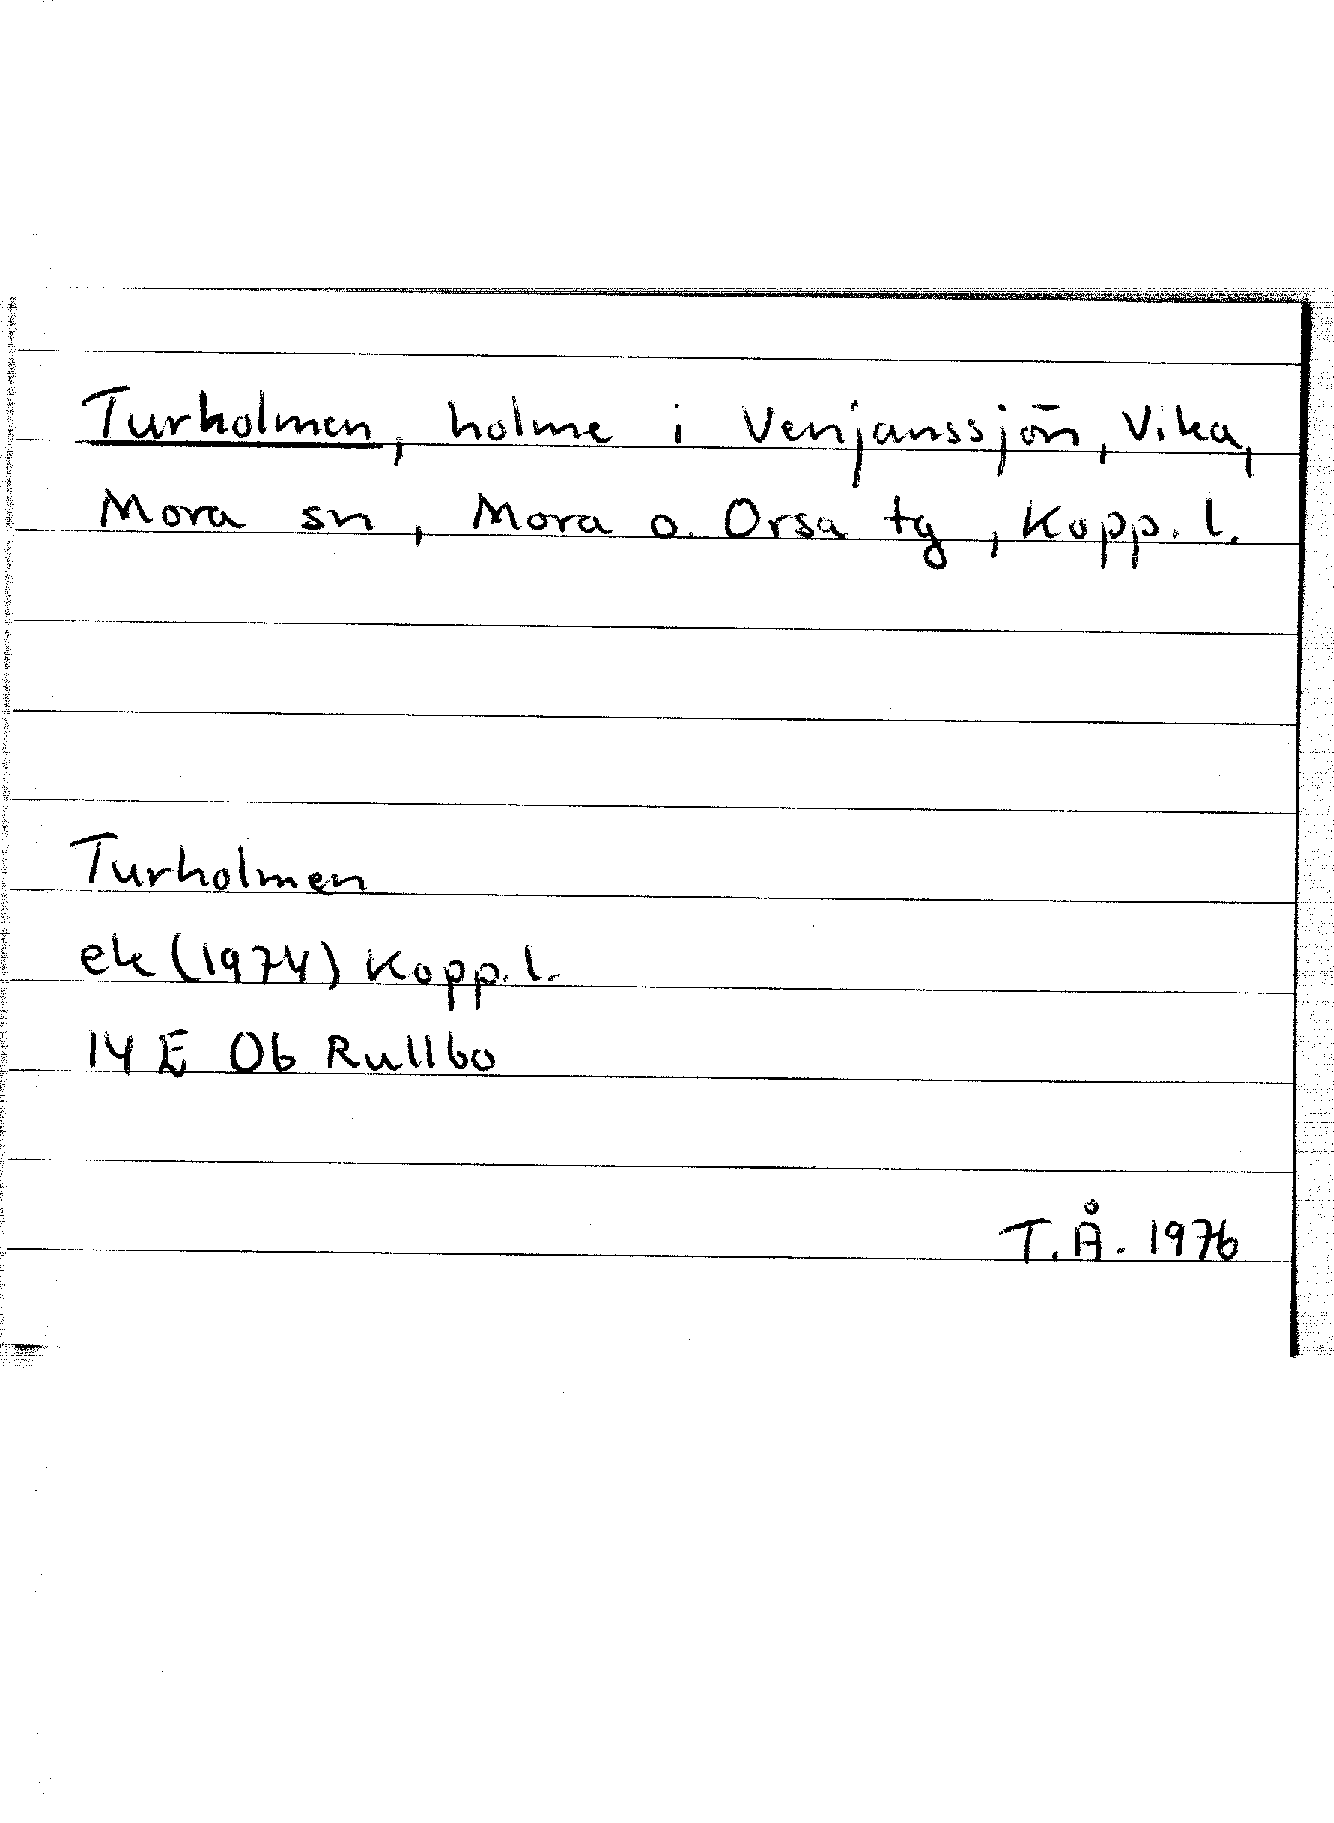 Turholmen, holme i Venjanssjön, Vika,
Mora sn, Mora o. Orsa tg, Kopp. l.
Turholmen
ek (1974) Kopp. l.
14 E 0b Rullbo
T.Å. 1976